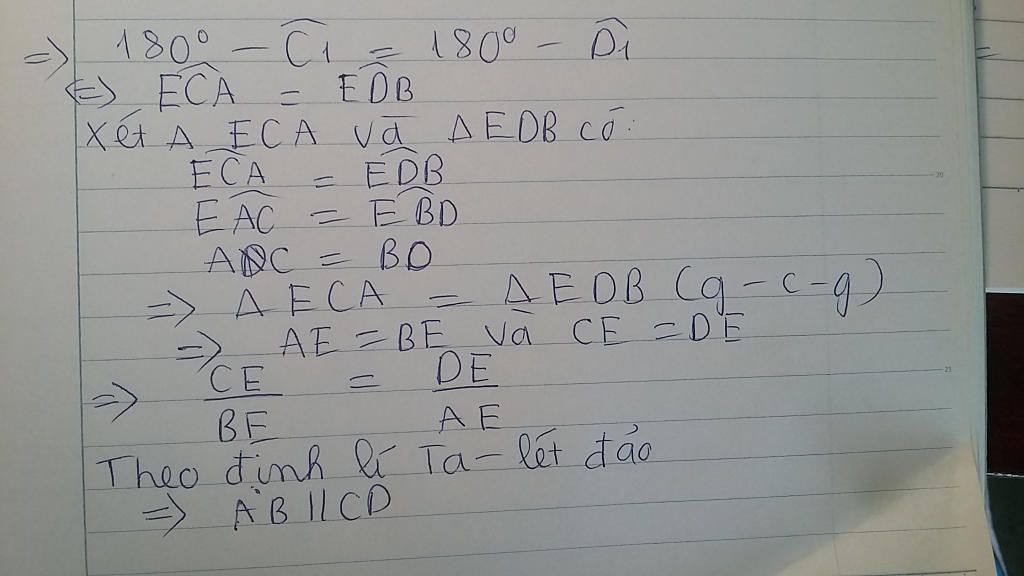 => 180° - Ĉ1 = 180° - D̂1
<=> EĈA = ED̂B
Xét Δ ECA và Δ EDB có:
EĈA = ED̂B
EÂC = EB̂D
AC = BD
=> Δ ECA = Δ EDB (g-c-g)
=> AE = BE và CE = DE
=> CE/BE = DE/AE
Theo định lí Ta-lét đảo
=> AB // CD
20
25